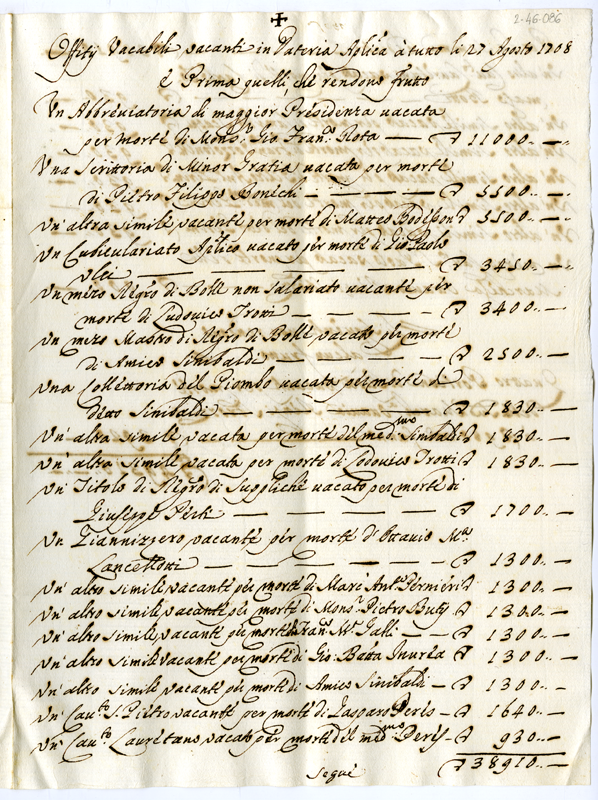 ✠
2-46-086
Offitij Vacabili vacanti in Dateria Aplica à tutto li 27 Agosto 1708
è Prima quelli, che rendono frutto
Un Abbreviatoria di maggior Presidenza vacata
per morte di Mons.r Gio. Fran.o Rota — ₽ 11000.. —
Una Scrittoria di Minor Gratia vacata per morte
di Pietro Filippo Bonichi — — — ₽ 5500.. —
Un'altra simile vacante per morte di Matteo ₽ 5500.. —
Un Cubiculariato Aplico vacato per morte di Gio. Paolo
Ulci — — — — — ₽ 3450.. —
Un mezo Regro di Bolle non salariato vacante per
morte di Ludovico Trotti — — — ₽ 3400.. —
Un mezo Mastro di Regro di Bolle vacato per morte
di Amico Sinibaldi — — — ₽ 2500.. —
Una Collettoria del Piombo vacata per morte di
detto Sinibaldi — — — — ₽ 1830.. —
Un'altra simile vacata per morte del med.mo Sinibaldi ₽ 1830.. —
Un'altra simile vacata per morte di Lodovico Trotti ₽ 1830.. —
Un Titolo di Regro di Suppliche vacato per morte di
Giuseppe — — — — ₽ 1700.. —
Un Giannizzero vacante per morte d'Ottavio M.a
Lancellotti — — — — ₽ 1300.. —
Un'altro simile vacante per morte di Marc'Ant.o Pernieri ₽ 1300.. —
Un'altro simile vacante per morte di Mons.r Pietro Buty ₽ 1300.. —
Un'altro simile vacante per morte di Fran.o M.a Galli — ₽ 1300.. —
Un'altro simile vacante per morte di Gio. Batta Inurea ₽ 1300.. —
Un'altro simile vacante per morte di Amico Sinibaldi — ₽ 1300.. —
Un Cau.to S. Pietro vacante per morte di Gasparo Peris — ₽ 1640.. —
Un Cau.to Lauretano vacato per morte del med.mo Peris — ₽ 930.. —
segue ₽ 38910.. —